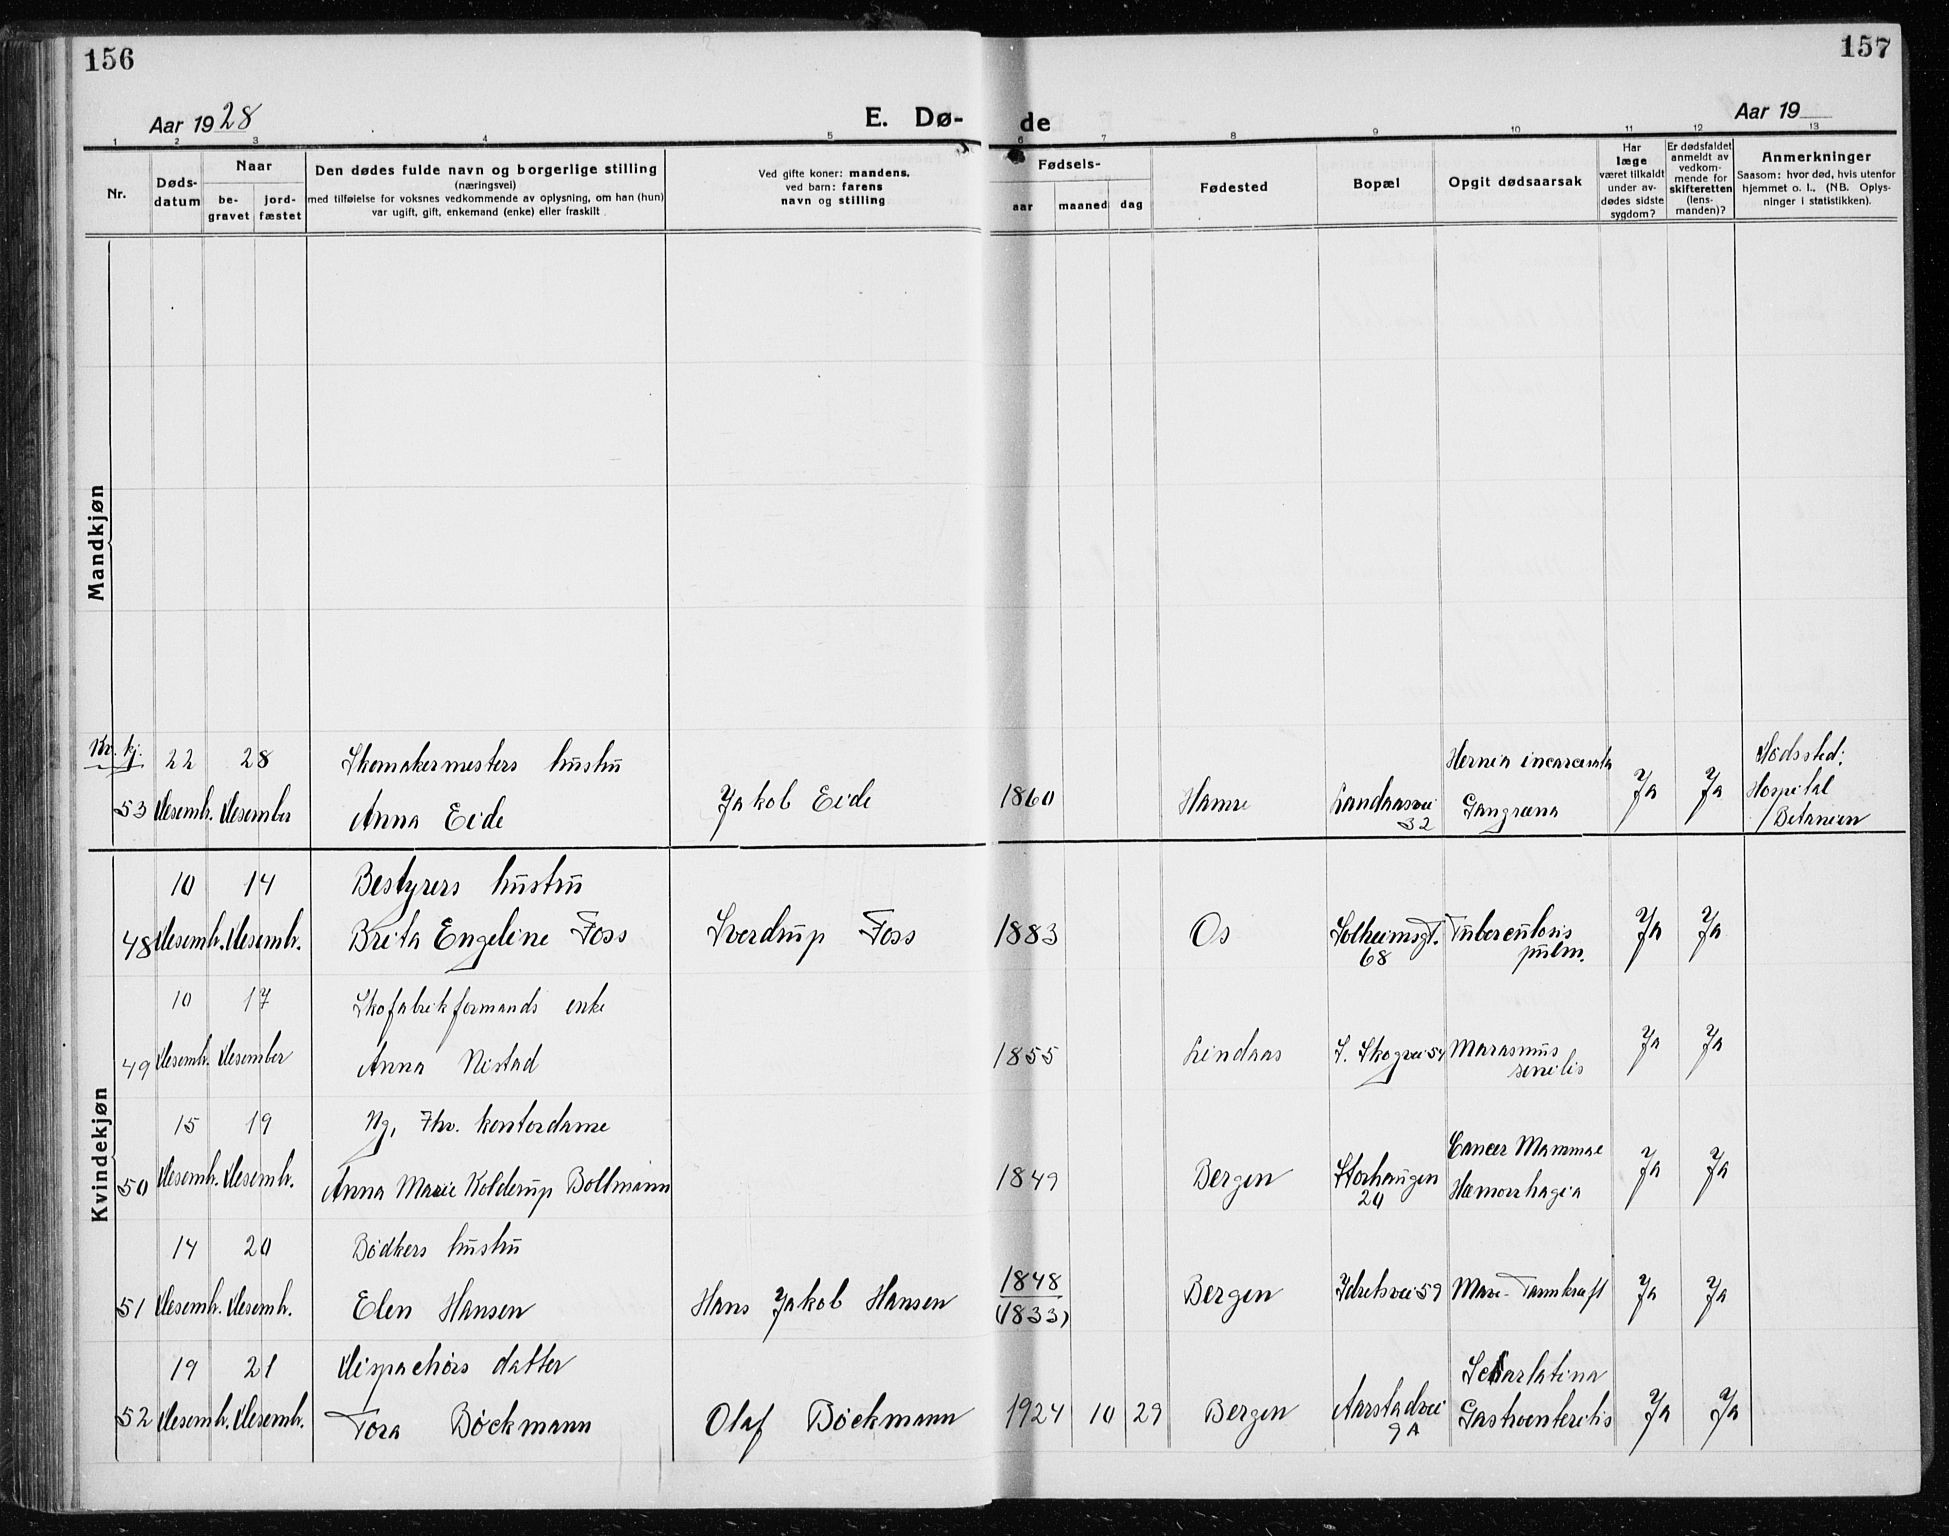 156
157
Aar 1928
E. Dø-
de
Aar 19
1 2 3 4 5 6 7 8 9 10 11 12 13
Nr.
Døds-
datum
Naar
be-
gravet
jord-
fæstet
Den dødes fulde navn og borgerlige stilling
(næringsvei)
med tilføielse for voksnes vedkommende av oplysning, om han (hun)
var ugift, gift, enkemand (enke) eller fraskilt
Ved gifte koner: mandens,
ved barn: farens
navn og stilling
Fødsels-
aar maaned dag
Fødested
Bopæl
Opgit dødsaarsak
Har
læge
været tilkaldt
under av-
dødes sidste
sygdom?
Er dødsfaldet
anmeldt av
vedkom-
mende for
skifteretten
(lens-
manden)?
Anmerkninger
Saasom: hvor død, hvis utenfor
hjemmet o. l., (NB. Oplys-
ninger i statistikken).
Mandkjøn
Kv. kj. 22 28 Skomakermesters hustru Hernia incarcerata Dødssted:
53 Desemb. Desember Anna Eide Jakob Eide 1860 Hamre Landaasvei 32 Gangræna Ja Ja Hospital
Betanien
Kvindekjøn
10 14 Bestyrers hustru
48 Desemb. Desemb. Brita Engeline Foss Sverdrup Foss 1883 Os Solheimsgt. 68 Tuberculosis pulm. Ja Ja
10 17 Skofabrikformands enke
49 Desemb. Desember Anna Nistad 1855 Lindaas S. Skogvei 54 Marasmus senilis Ja Ja
15 19 Ug, fhv. kontordame Cancer Mammae
50 Desemb. Desemb. Anna Marie Kolderup Bollmann 1849 Bergen Storhaugen 20 Hæmorrhagia Ja Ja
14 20 Bødkers hustru 1848
51 Desemb. Desemb. Elen Hansen Hans Jakob Hansen (1833) Bergen Idretsvei 59 Mave-Tarmkræft Ja Ja
19 21 Dispachørs datter Scarlatina
52 Desemb. Desemb. Tora Bøckmann Olaf Bøckmann 1924 10 29 Bergen Aarstadvei 9A Gastroenteritis Ja Ja